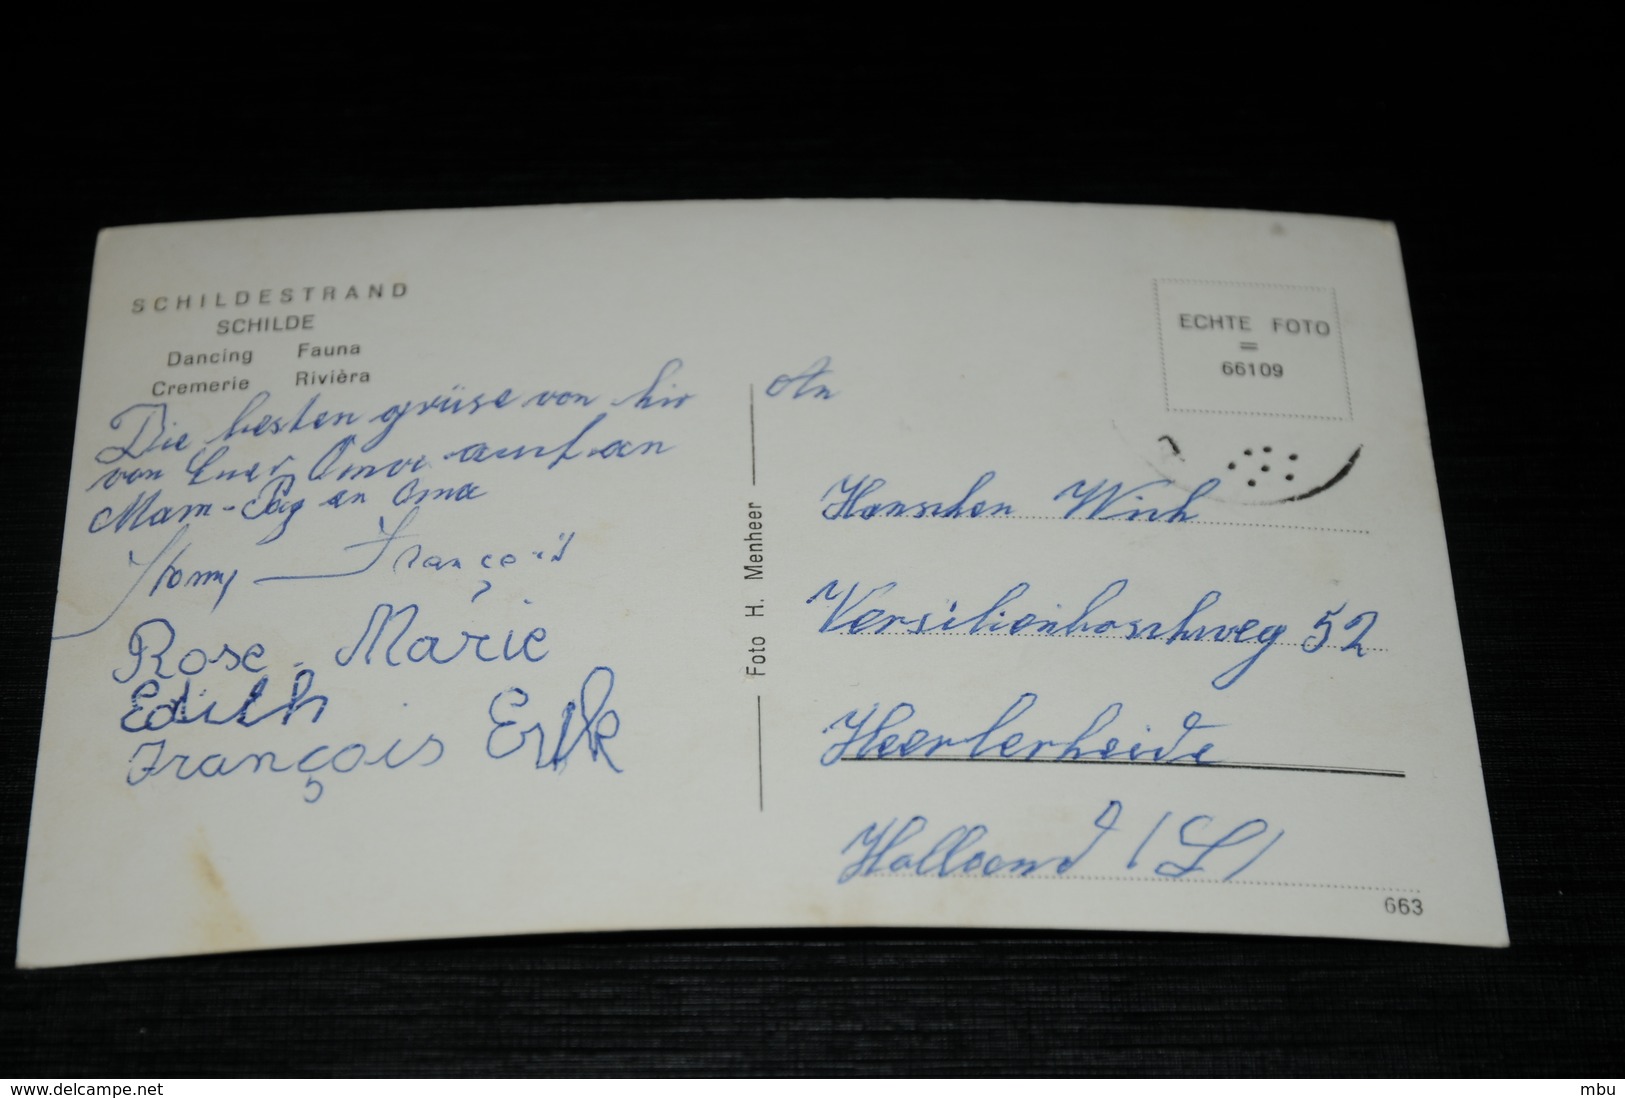 SCHILDESTRAND
SCHILDE
Dancing Fauna
Cremerie Rivièra
Die besten grüse von hir
von Euer Oma auch an
Mam - Pag en Oma
François
Rose - Marie
Edith
François Erik
Foto H. Menheer
ECHTE FOTO
=
66109
An
Hanschen Wich
Versilienboschweg 52
Heerlerheide
Holland (L)
663
www.delcampe.net
mbu